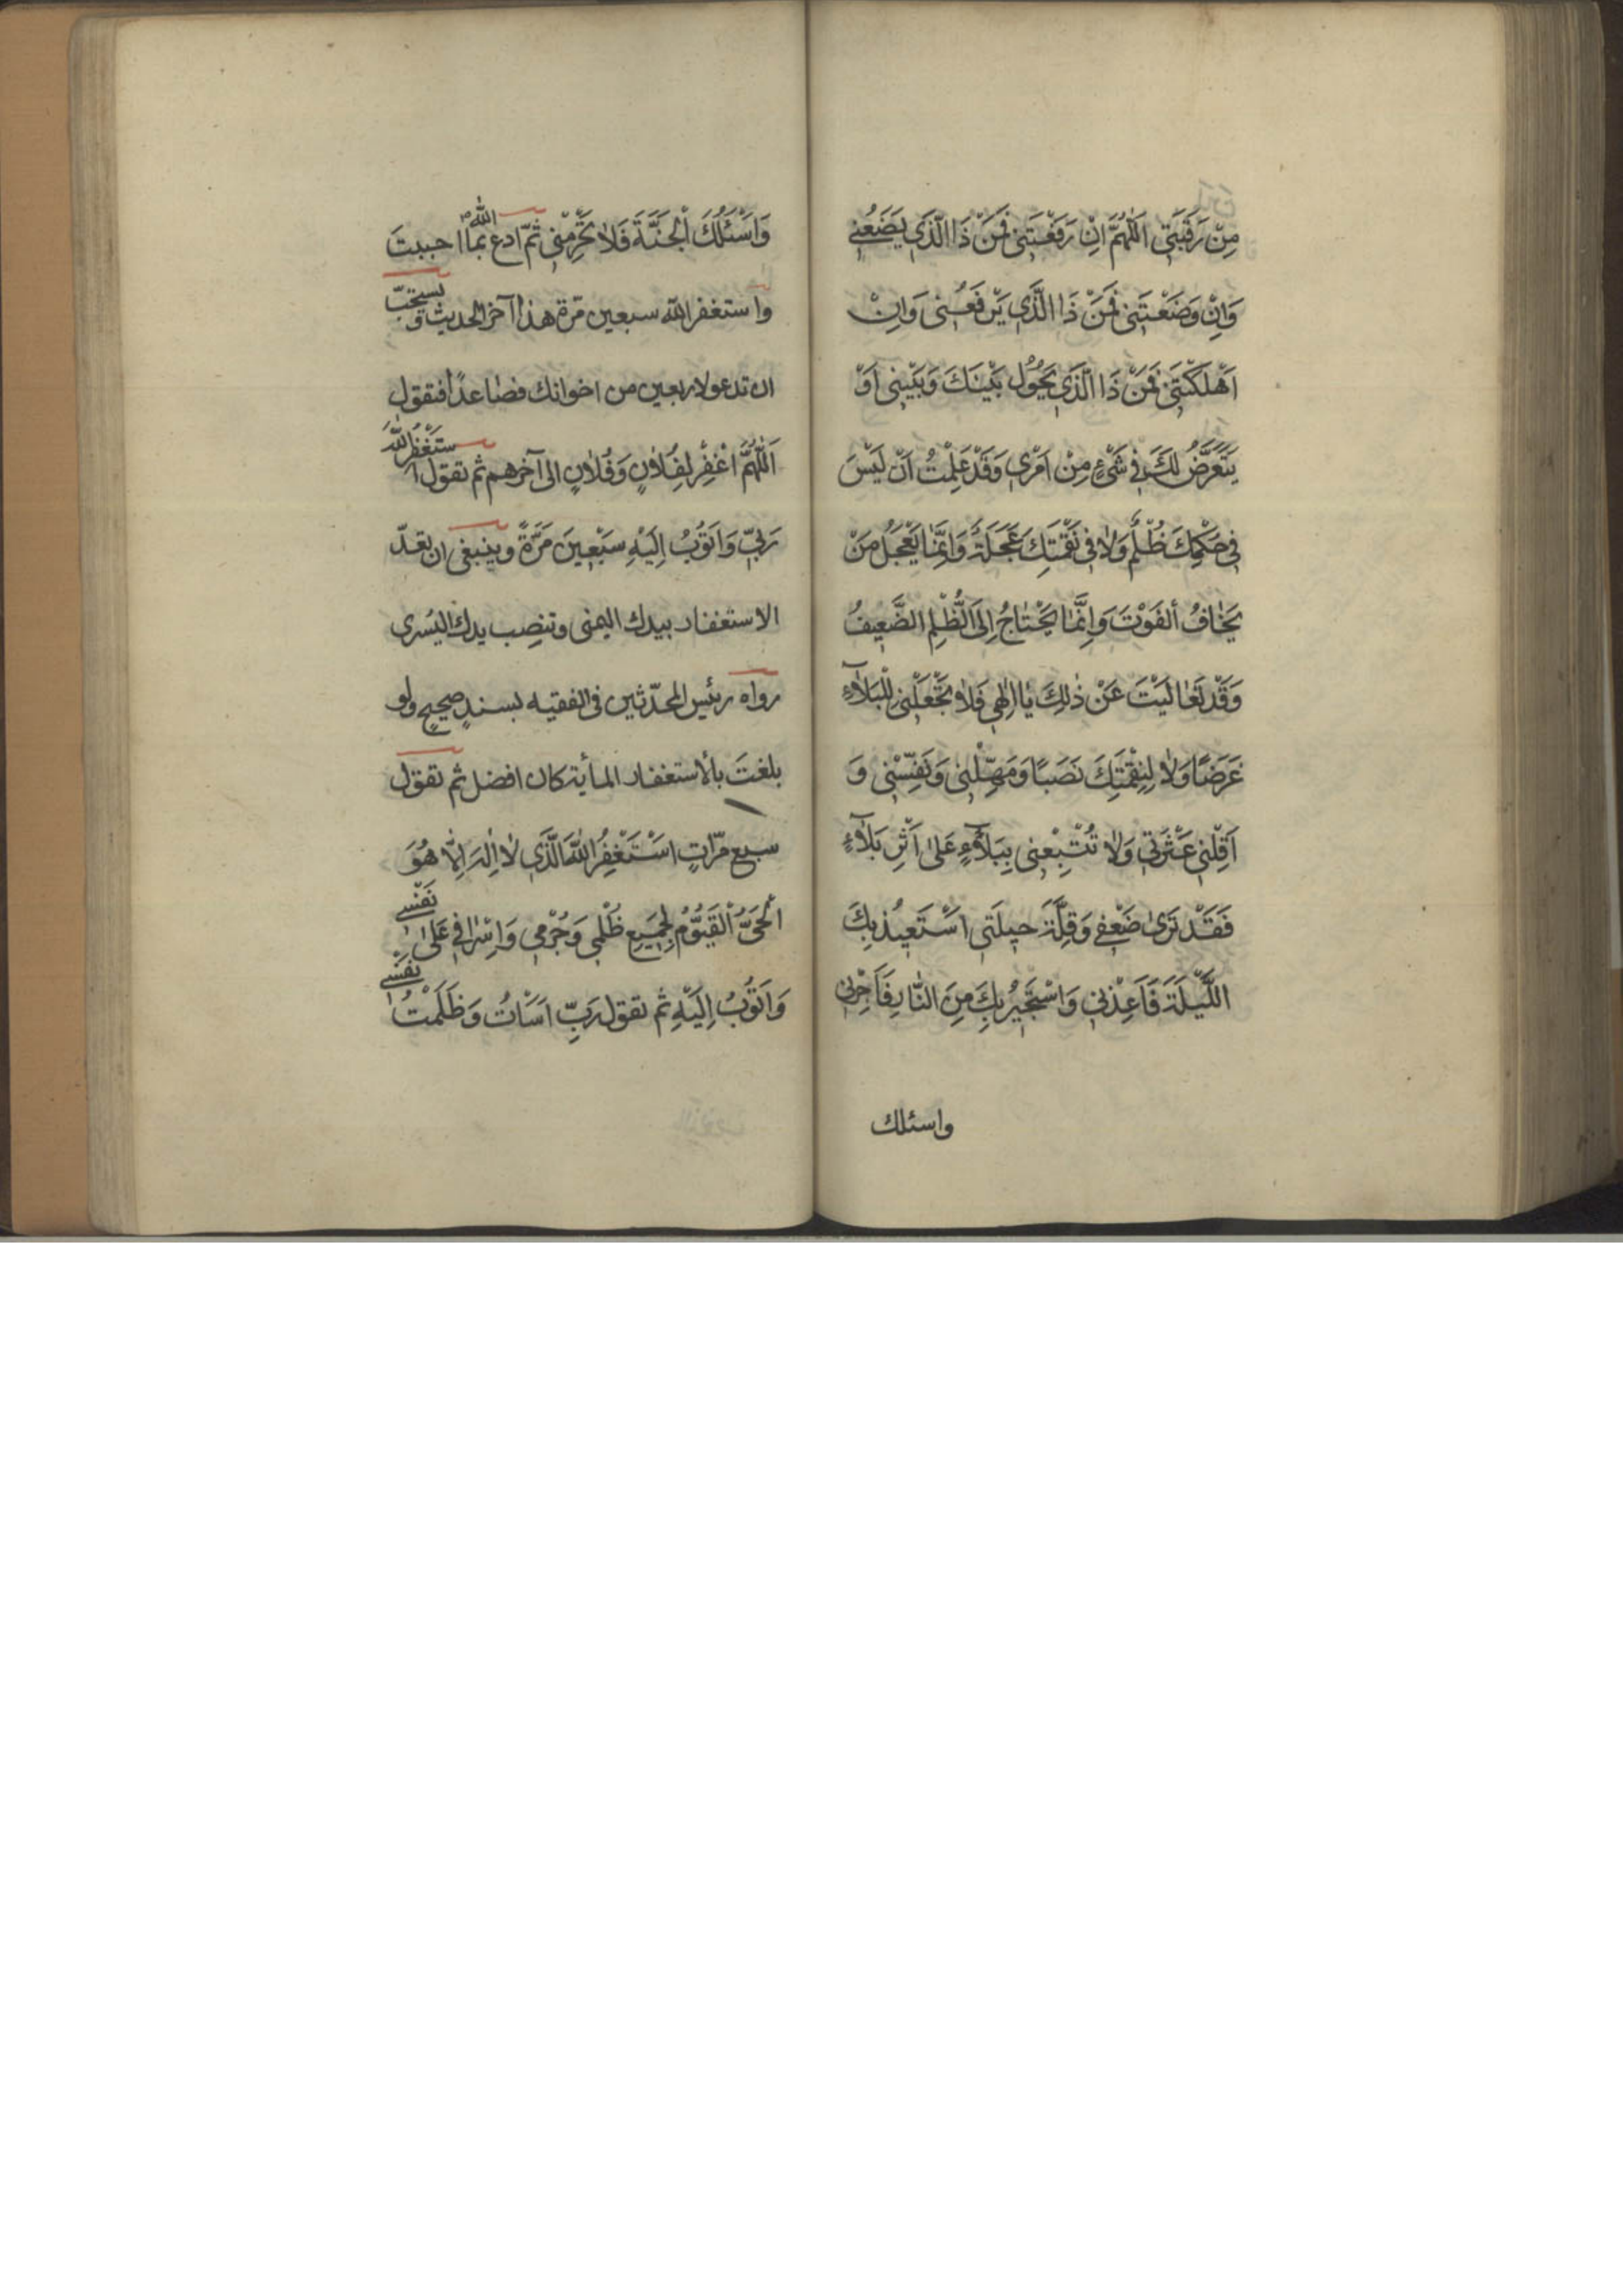 مِنْ رَقَبَتِي اَللّٰهُمَّ اِنْ رَفَعْتَنِي فَمَنْ ذَا الَّذِي يَضَعُنِي
وَاِنْ وَضَعْتَنِي فَمَنْ ذَا الَّذِي يَرْفَعُنِي وَاِنْ
اَهْلَكْتَنِي فَمَنْ ذَا الَّذِي يَحُولُ بَيْنَكَ وَبَيْنِي اَوْ
يَتَعَرَّضُ لَكَ فِي شَيْءٍ مِنْ اَمْرِي وَقَدْ عَلِمْتُ اَنْ لَيْسَ
فِي حُكْمِكَ ظُلْمٌ وَلَا فِي نَقِمَتِكَ عَجَلَةٌ وَاِنَّمَا يَعْجَلُ مَنْ
يَخَافُ الْفَوْتَ وَاِنَّمَا يَحْتَاجُ اِلَى الظُّلْمِ الضَّعِيفُ
وَقَدْ تَعَالَيْتَ عَنْ ذٰلِكَ يَا اِلٰهِي فَلَا تَجْعَلْنِي لِلْبَلَآءِ
غَرَضًا وَلَا لِنِقْمَتِكَ نَصَبًا وَمَهِّلْنِي وَنَفِّسْنِي وَ
اَقِلْنِي عَثْرَتِي وَلَا تُتْبِعْنِي بِبَلَآءٍ عَلٰى اَثَرِ بَلَآءٍ
فَقَدْ تَرٰى ضَعْفِي وَقِلَّةَ حِيلَتِي اَسْتَعِيذُ بِكَ
اللَّيْلَةَ فَاَعِذْنِي وَاَسْتَجِيرُ بِكَ مِنَ النَّارِ فَاَجِرْنِي
واسئلك
وَاَسْئَلُكَ الْجَنَّةَ فَلَا تَحْرِمْنِي ثمّ ادع الله بما احببتَ
واستغفر الله سبعين مرّة هذا آخر الحديث ويستحبّ
ان تدعو لاربعين من اخوانك فصاعدًا فتقول
اَللّٰهُمَّ اغْفِرْ لِفُلَانٍ وَفُلَانٍ الى آخرهم ثم تقول اَسْتَغْفِرُ اللّٰهَ
رَبِّي وَاَتُوبُ اِلَيْهِ سَبْعِينَ مَرَّةً وينبغى ان تعدّ
الاستغفار بيدك اليمنى وتنصِب يدك اليُسرى
رواه رئيس المحدّثين فى الفقيه بسندٍ صحيحٍ ولو
بلغتَ بالاستغفار المأية كان افضل ثم تقول
سبع مرّاتٍ اَسْتَغْفِرُ اللّٰهَ الَّذِي لَا اِلٰهَ اِلَّا هُوَ
الْحَيُّ الْقَيُّومُ لِجَمِيعِ ظُلْمِي وَجُرْمِي وَاِسْرَافِي عَلٰى نَفْسِي
وَاَتُوبُ اِلَيْهِ ثم تقول رَبِّ اَسَأْتُ وَظَلَمْتُ نَفْسِي